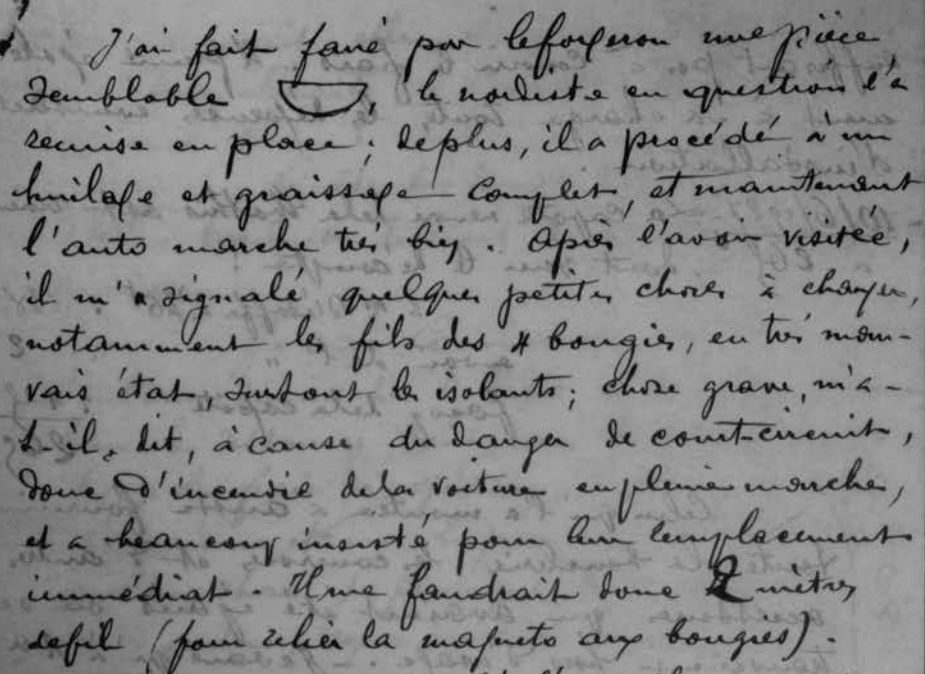 J'ai fait faire par le forgeron une pièce
semblable , le nordiste en question l'a
remise en place ; de plus, il a procédé à un
huilage et graissage complet, et maintenant
l'auto marche très bien. Après l'avoir visitée,
il m'a signalé quelques petites choses à changer,
notamment les fils des 4 bougies, en très mau-
vais état, surtout les isolants ; chose grave, m'a-
t-il dit, à cause du danger de court-circuit,
donc d'incendie de la voiture en pleine marche,
et a beaucoup insisté pour leur remplacement
immédiat. Il me faudrait donc 2 mètres
de fil (pour relier la magnéto aux bougies).